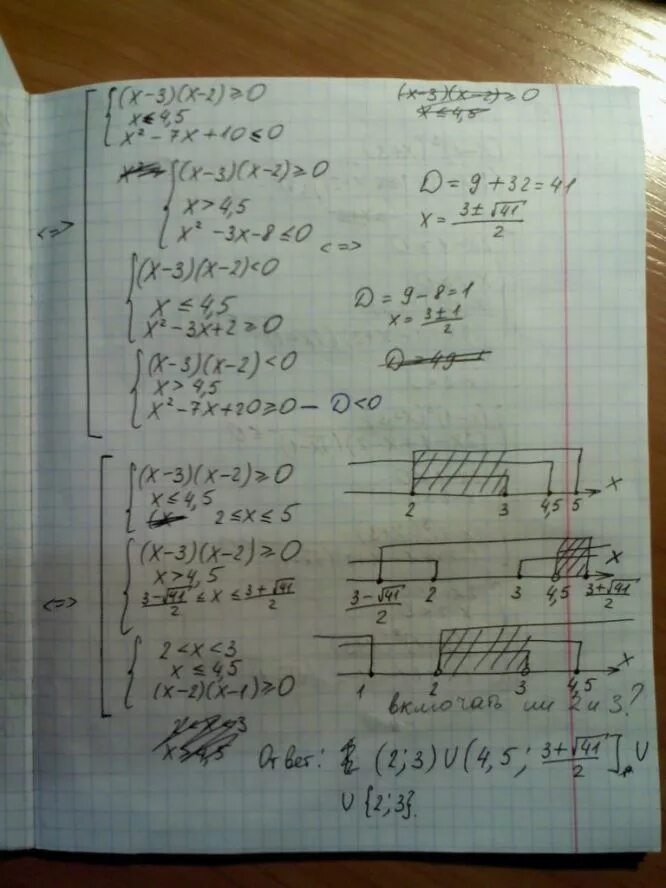 (x-3)(x-2)≥0
x≤4,5
x²-7x+10≤0
(x-3)(x-2)≥0
x≤4,5
(x-3)(x-2)≥0
x>4,5
x²-3x-8≤0
<=>
D=9+32=41
x=(3±√41)/2
<=>
(x-3)(x-2)<0
x≤4,5
x²-3x+2≥0
D=9-8=1
x=(3±1)/2
(x-3)(x-2)<0
x>4,5
x²-7x+20≥0 – D<0
D=49
(x-3)(x-2)≥0
x≤4,5
2≤x≤5
2 3 4,5 5 x
<=>
(x-3)(x-2)≥0
x>4,5
(3-√41)/2 ≤x≤ (3+√41)/2
(3-√41)/2 2 3 4,5 (3+√41)/2 x
2<x<3
x≤4,5
(x-2)(x-1)≥0
1 2 3 4,5 x
включать ли 2 и 3?
x>4,5
Ответ: (2;3)∪(4,5; (3+√41)/2]∪
∪{2;3}.